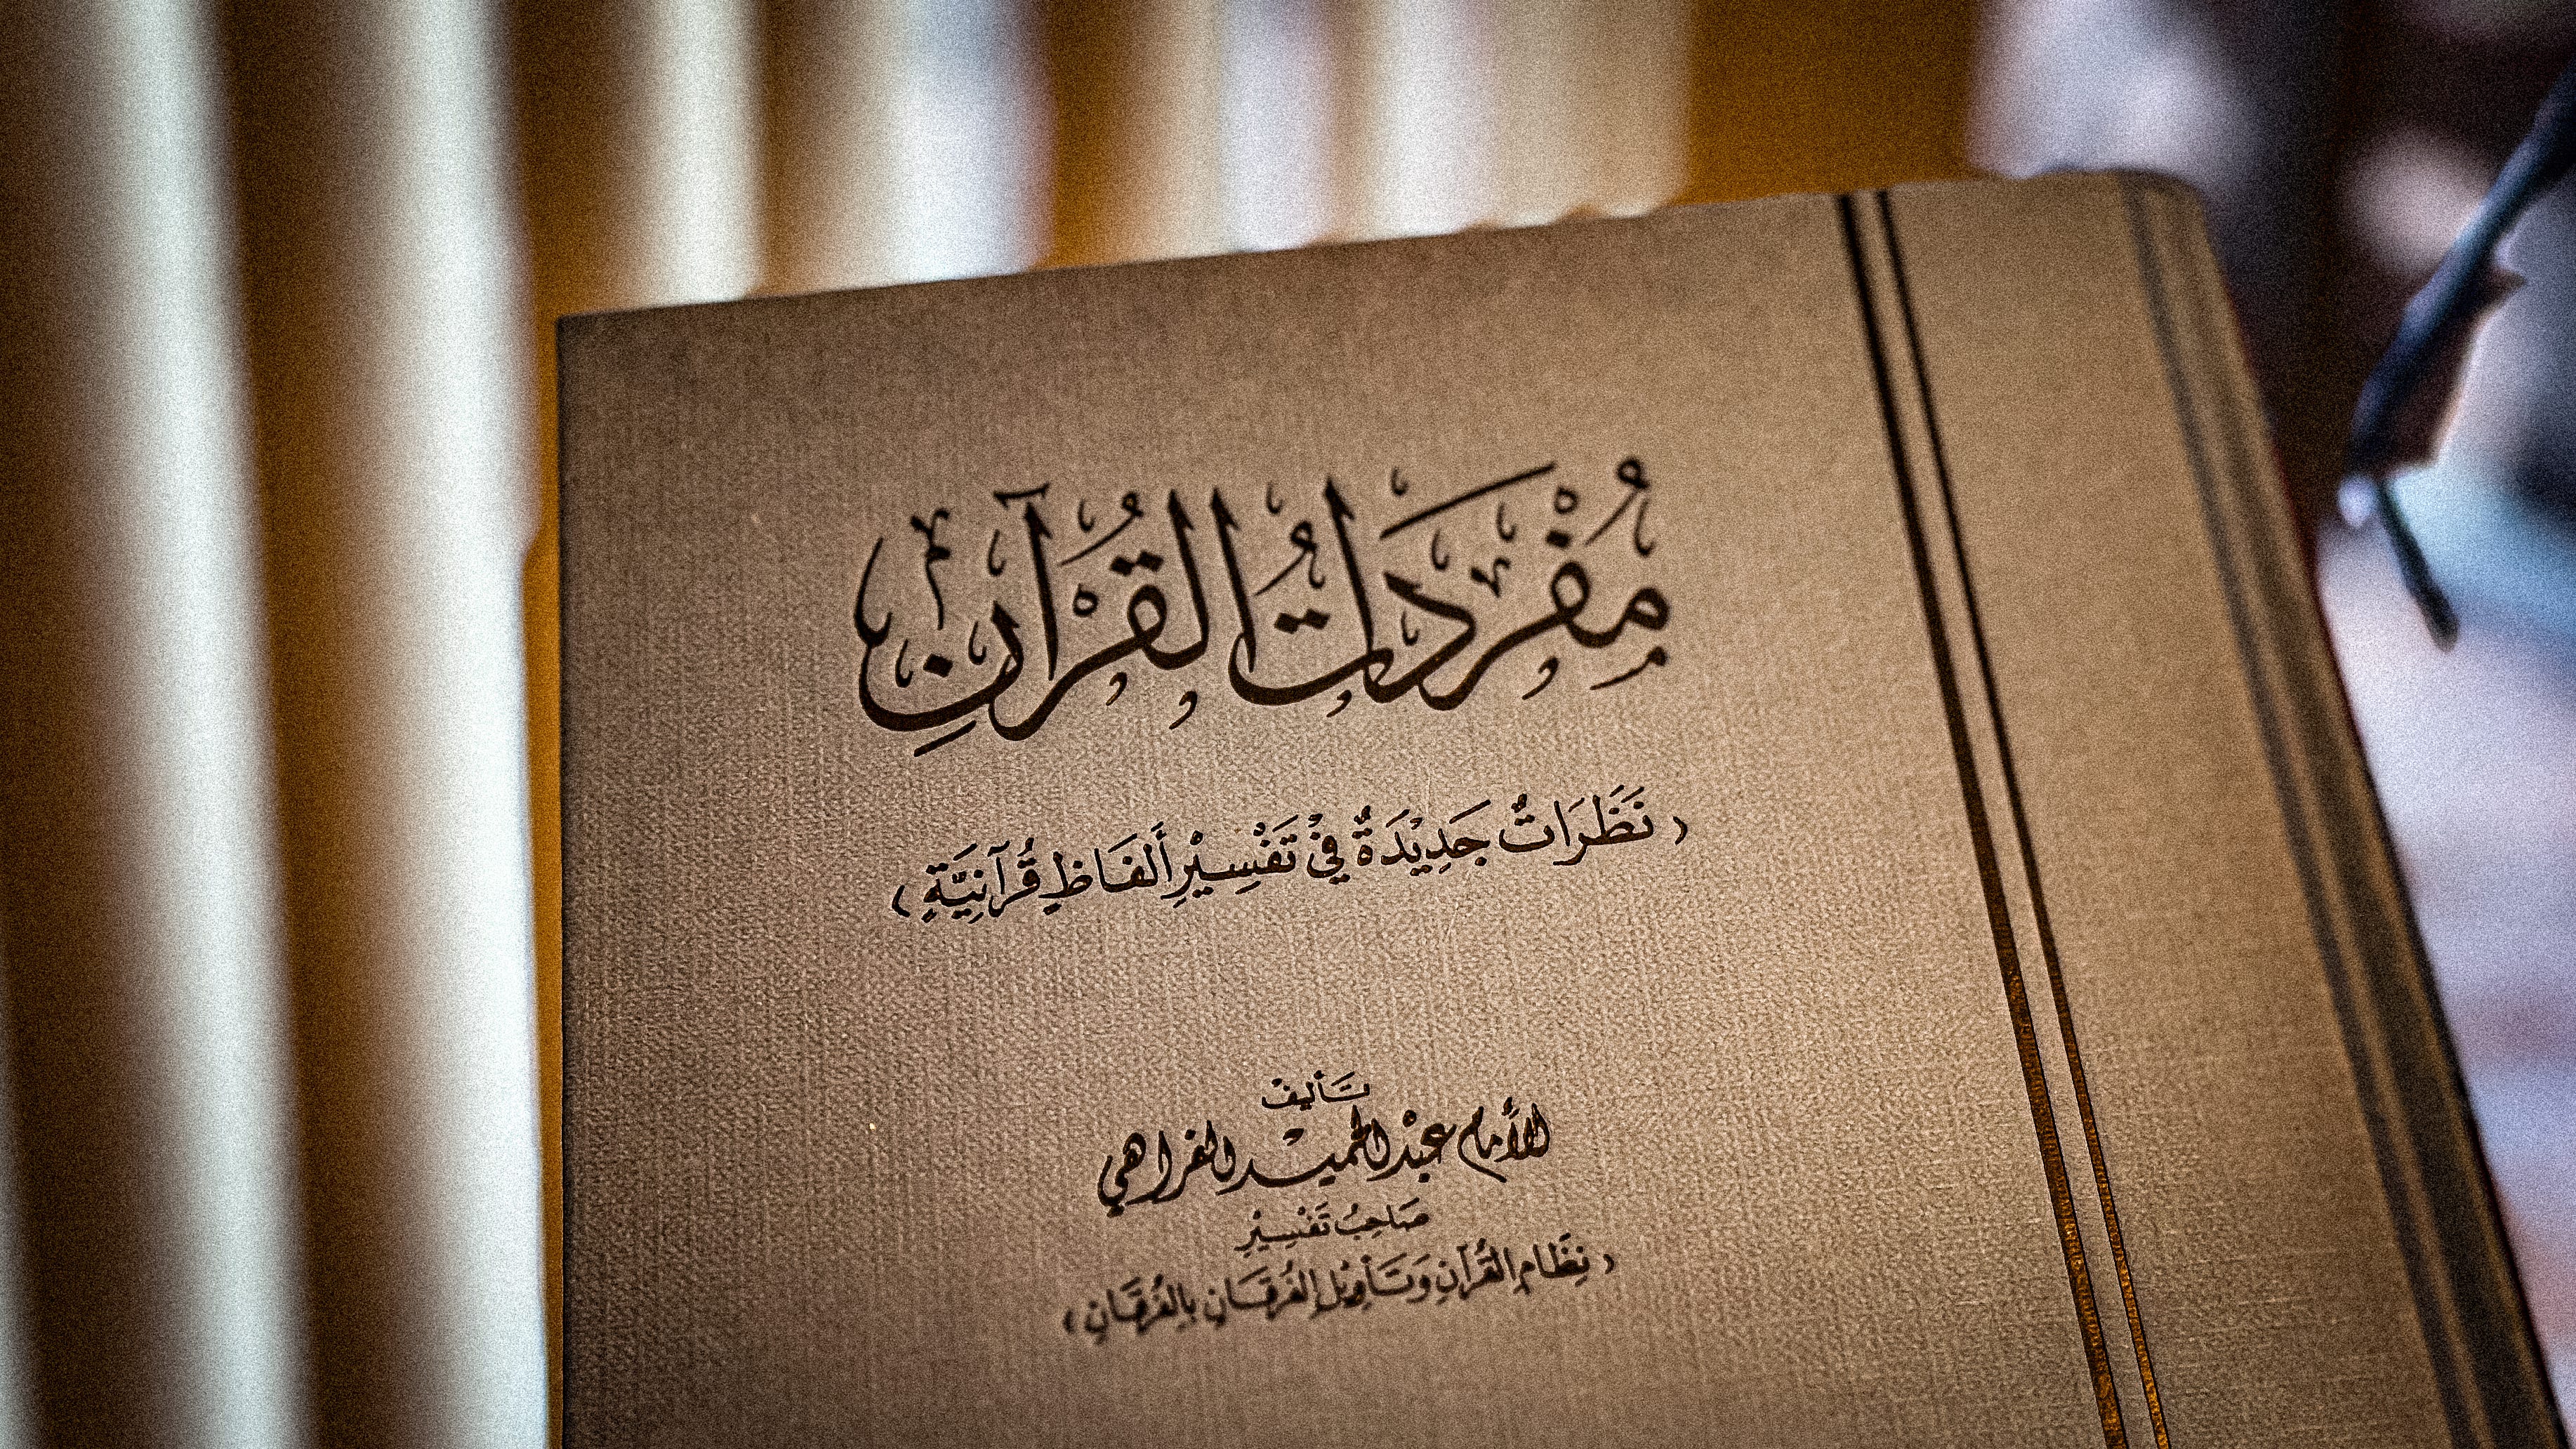 مُفْرَدَاتُ الْقُرْآنِ
( نَظَرَاتٌ جَدِيْدَةٌ فِيْ تَفْسِيْرِ أَلْفَاظٍ قُرْآنِيَّةٍ )
تَأليفْ
الإمام عَبْد الحميد الفراهي
صَاحِبُ تَفْسِيْرِ
( نِظَامِ الْقُرْآنِ وَتَأوِيْلِ الفُرْقَانِ بِالفُرْقَانِ )